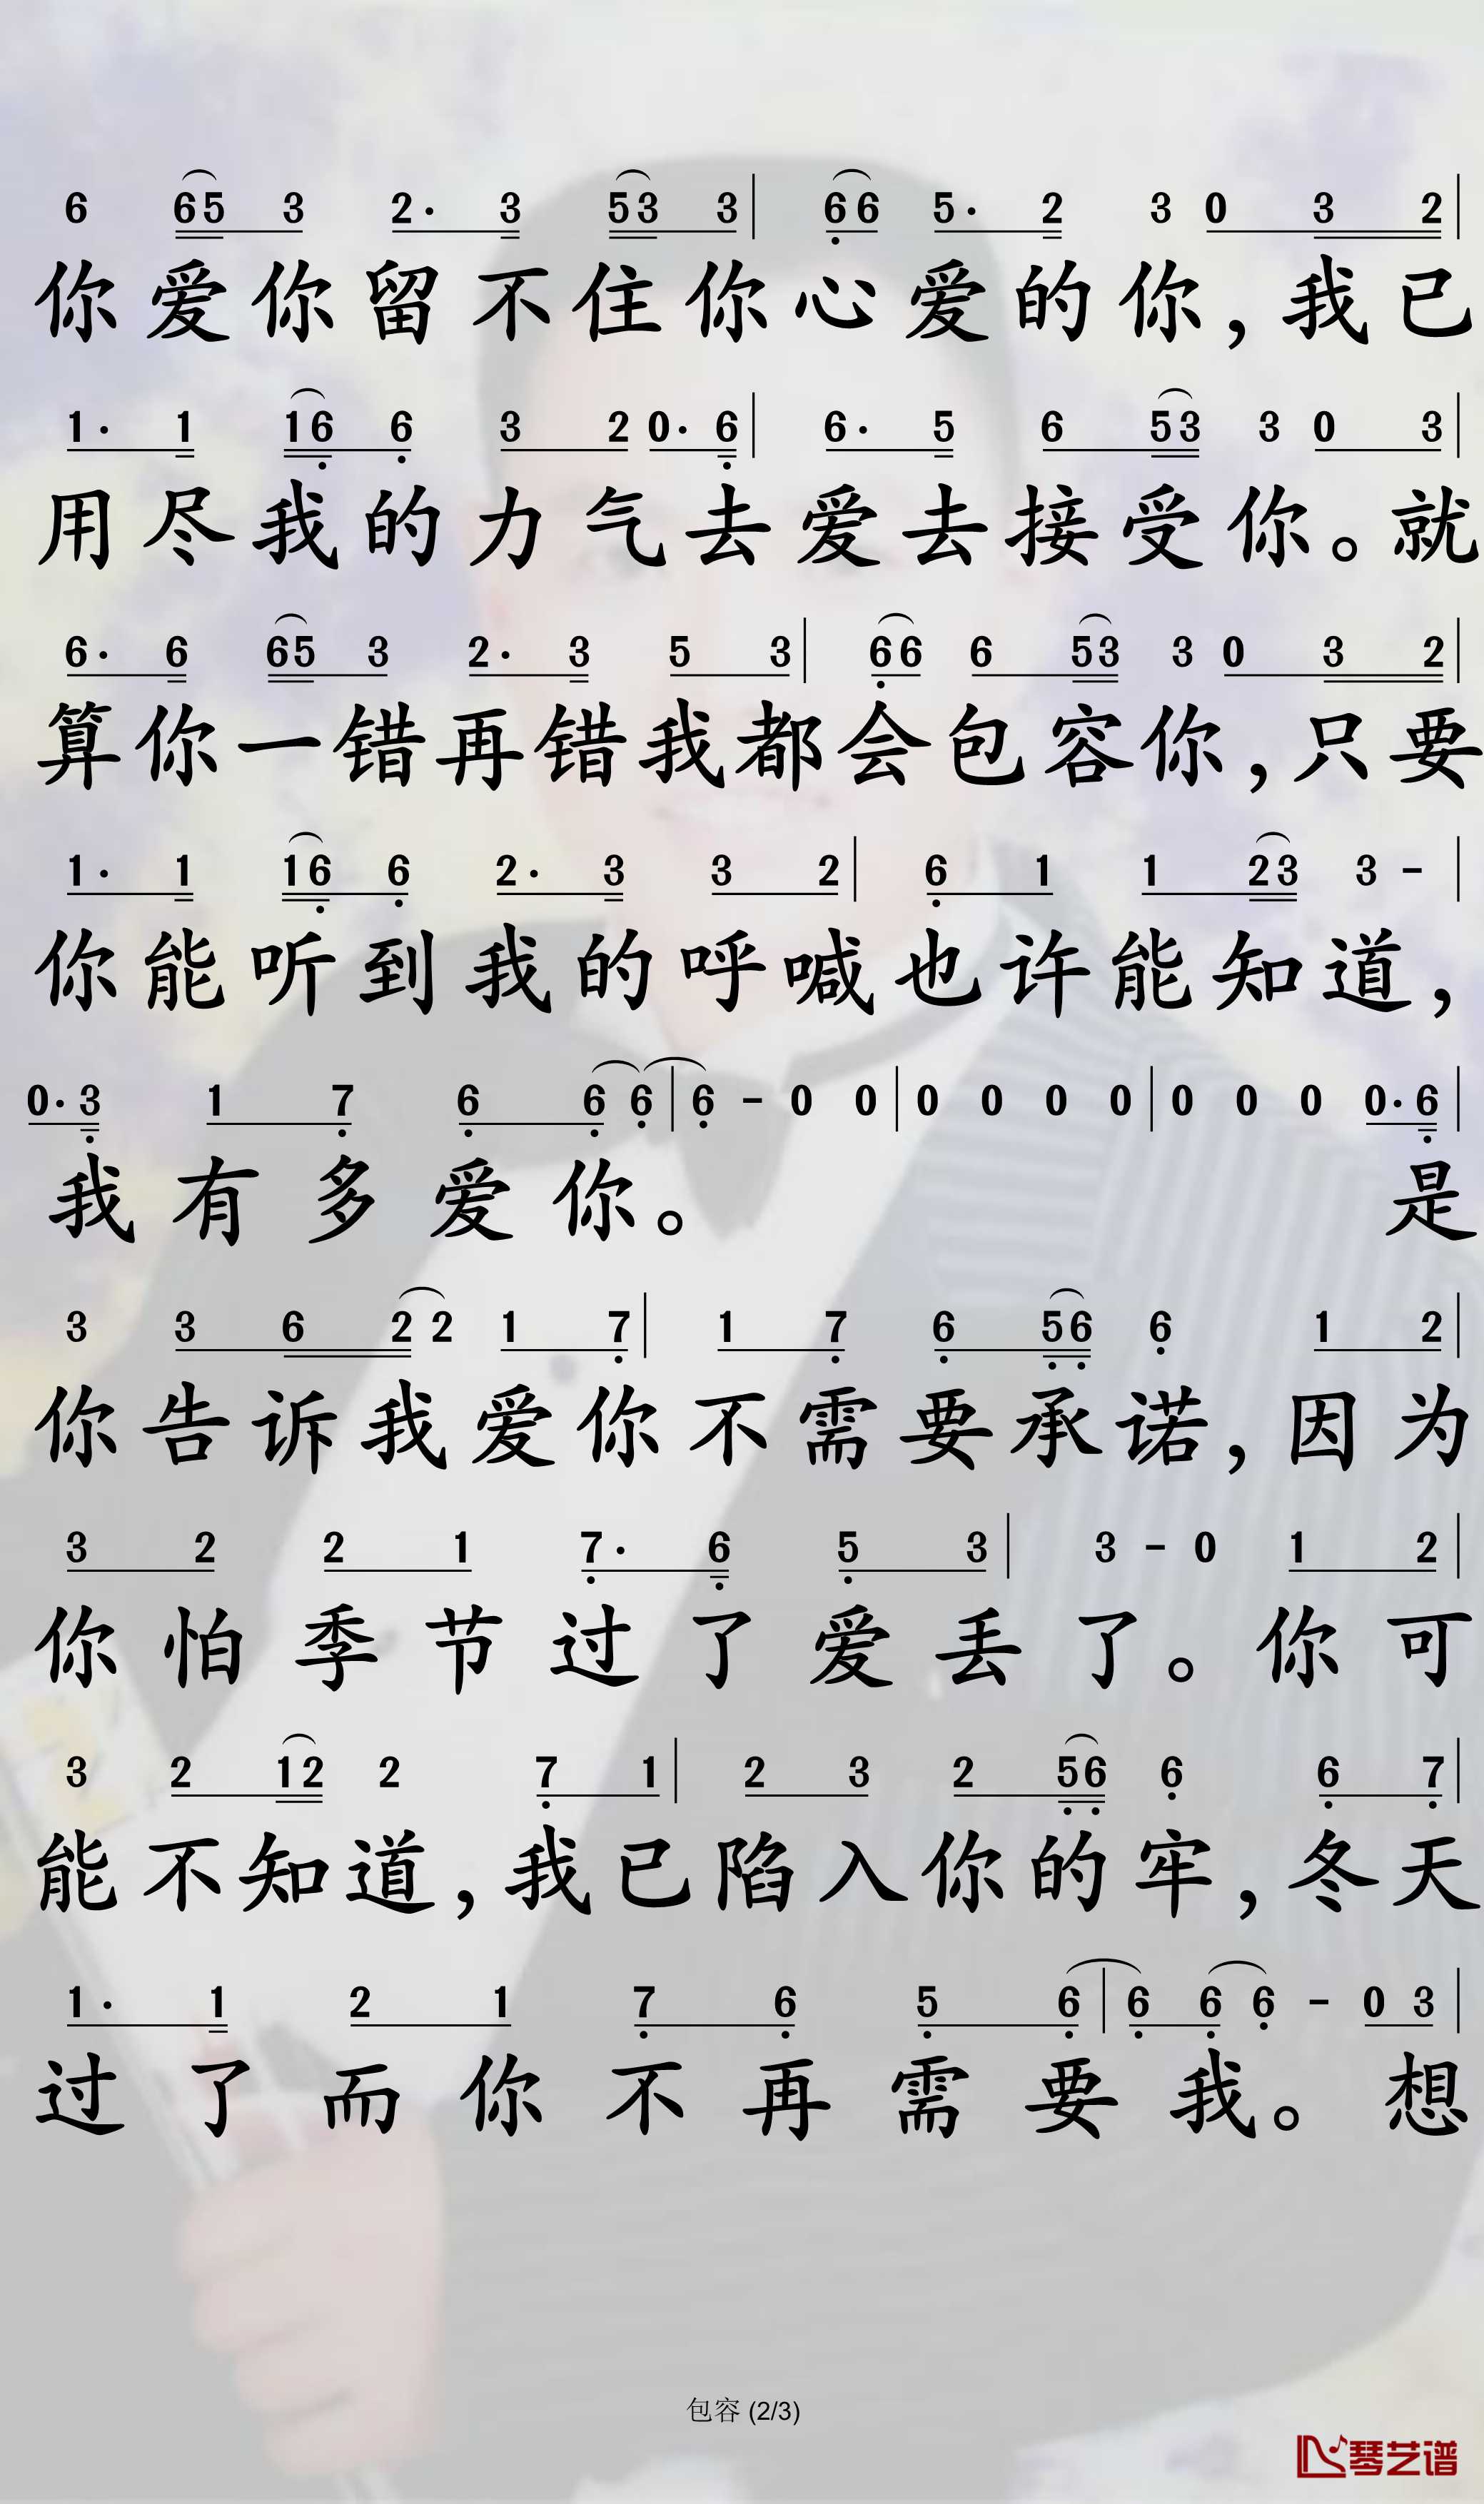 6 65 3 2· 3 53 3 | 66 5· 2 3 0 3 2 |
你爱你留不住你心爱的你，我已
1· 1 16 6 3 2 0· 6 | 6· 5 6 53 3 0 3 |
用尽我的力气去爱去接受你。就
6· 6 65 3 2· 3 5 3 | 66 6 53 3 0 3 2 |
算你一错再错我都会包容你，只要
1· 1 16 6 2· 3 3 2 | 6 1 1 23 3 - |
你能听到我的呼喊也许能知道，
0· 3 1 7 6 6 6 | 6 - 0 0 | 0 0 0 0 | 0 0 0 0· 6 |
我有多爱你。是
3 3 6 2 2 1 7 | 1 7 6 56 6 1 2 |
你告诉我爱你不需要承诺，因为
3 2 2 1 7· 6 5 3 | 3 - 0 1 2 |
你怕季节过了爱丢了。你可
3 2 12 2 7 1 | 2 3 2 56 6 6 7 |
能不知道，我已陷入你的牢，冬天
1· 1 2 1 7 6 5 6 | 6 6 6 - 0 3 |
过了而你不再需要我。想
包容 (2/3)
琴艺谱